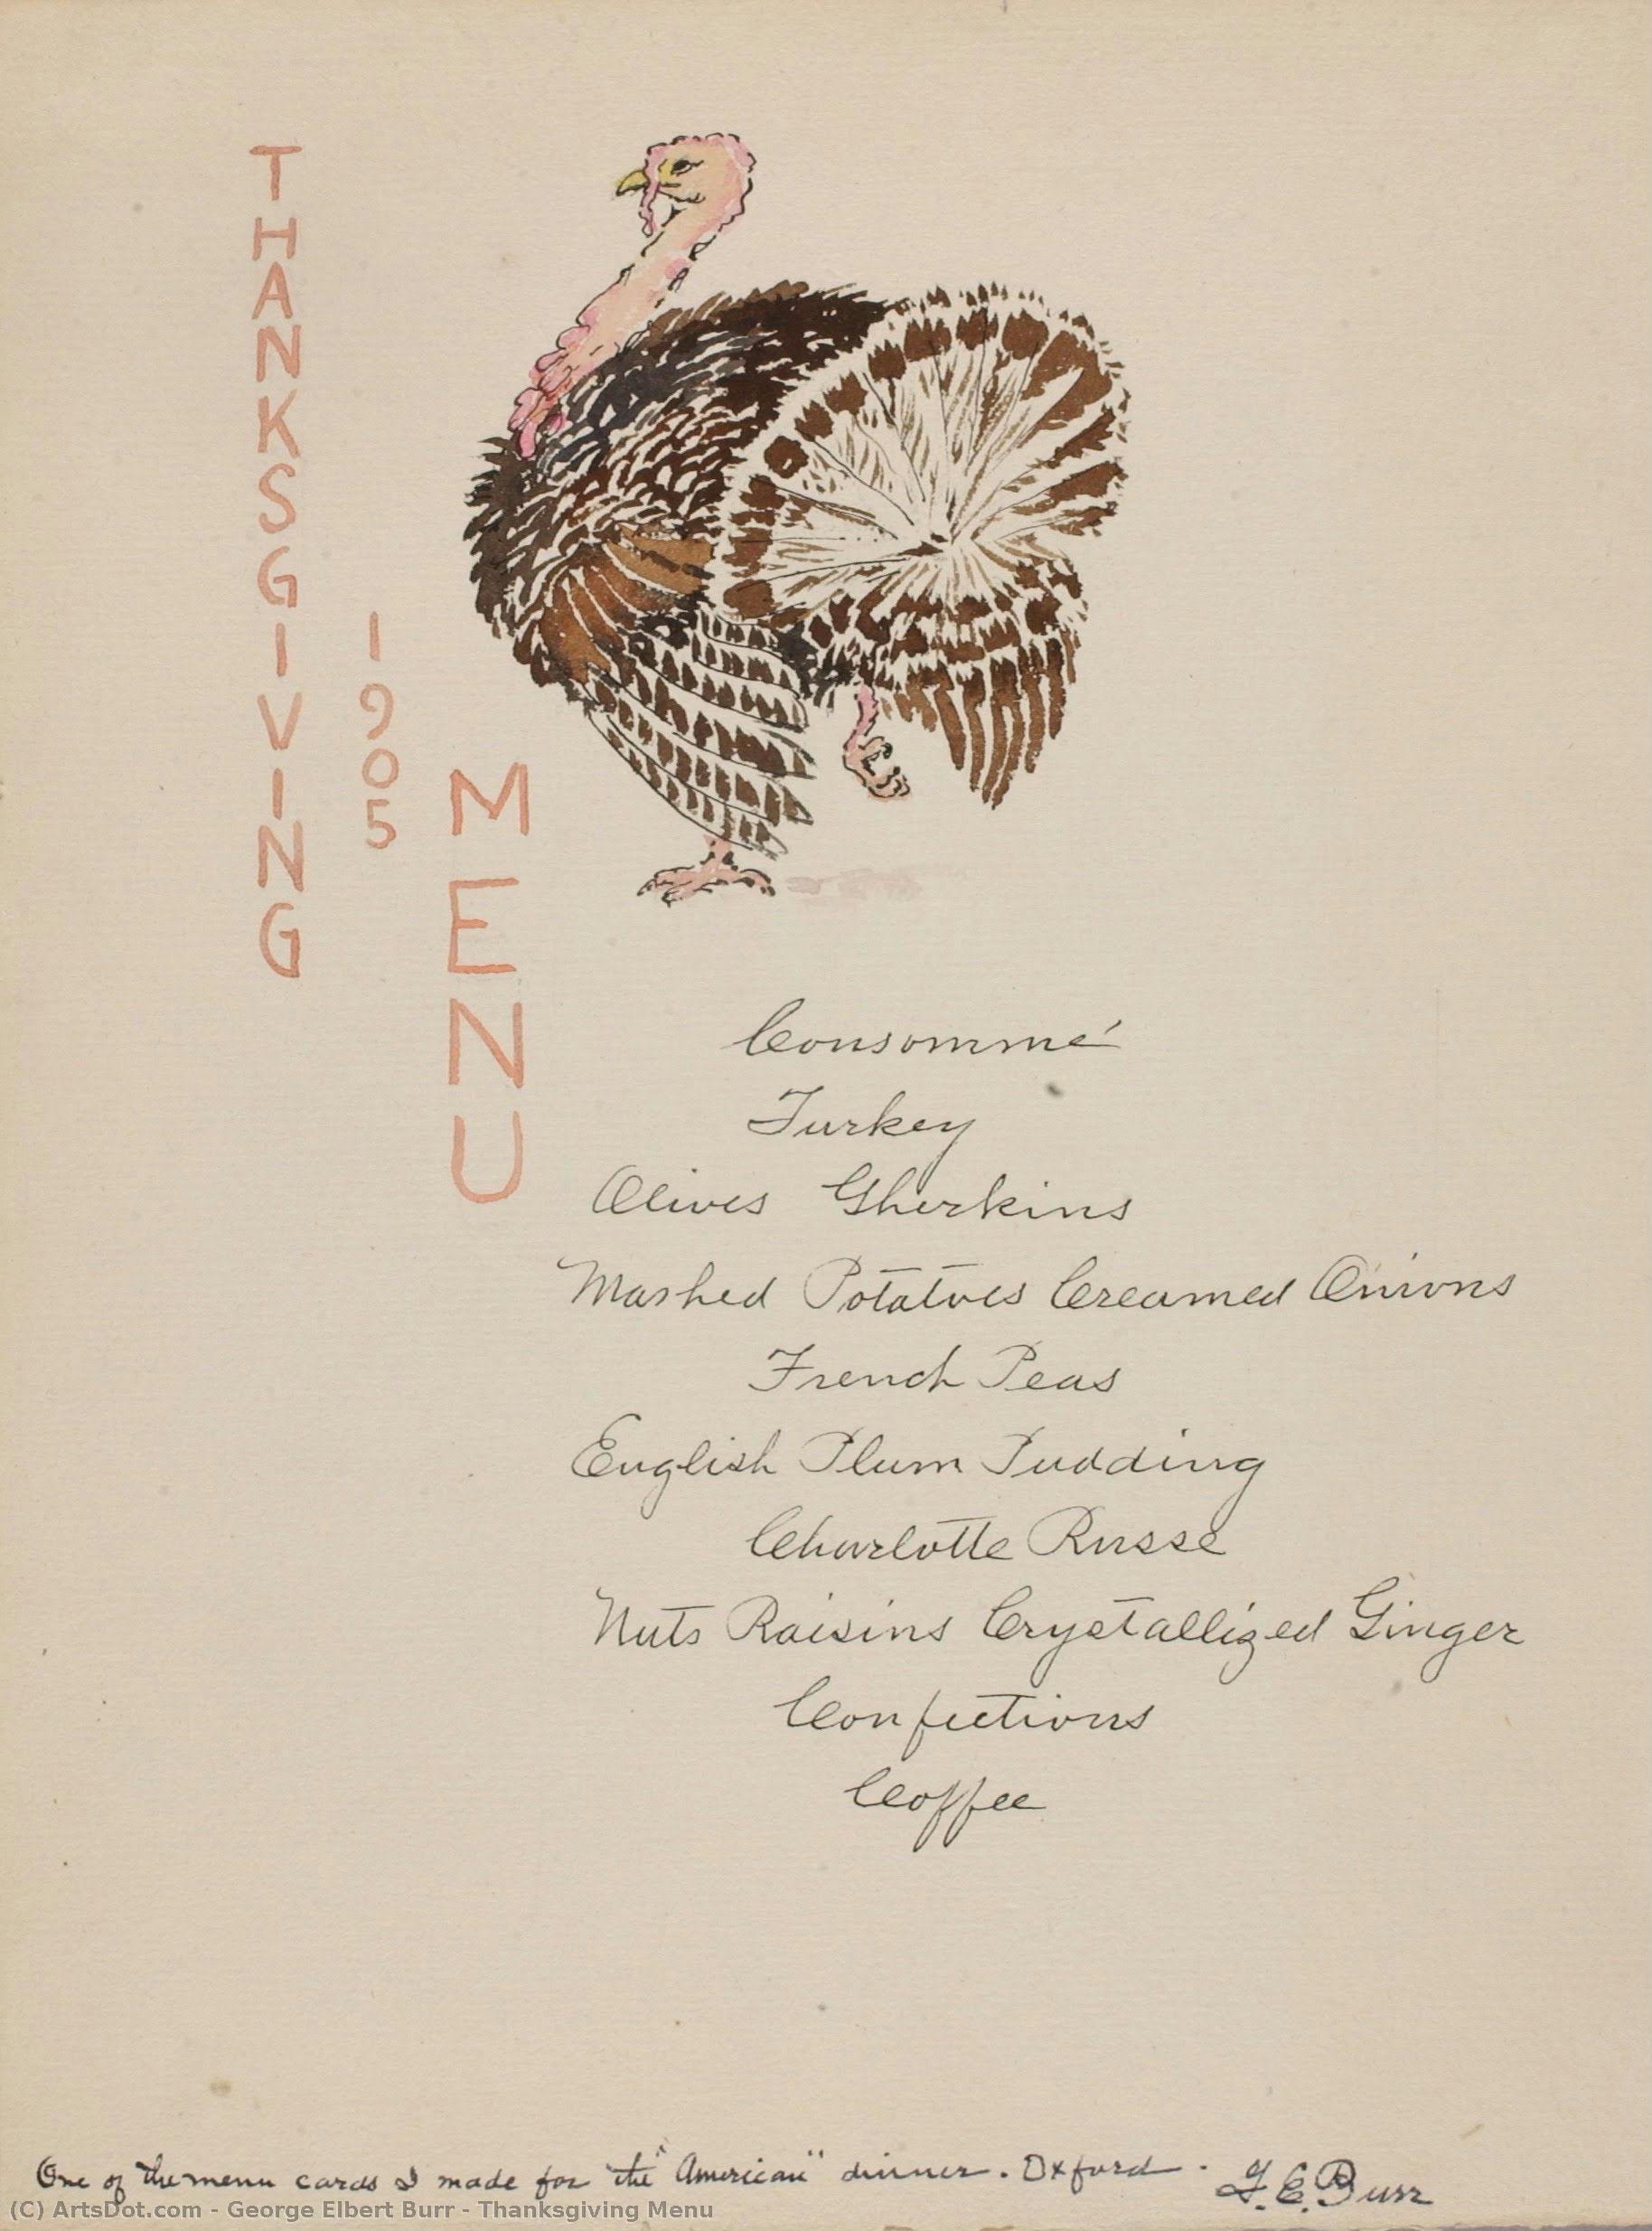 THANKSGIVING
1905
MENU
Consommé
Turkey
Olives Gherkins
Mashed Potatoes Creamed Onions
French Peas
English Plum Pudding
Charlotte Russe
Nuts Raisins Crystallized Ginger
Confections
Coffee
One of the menu cards I made for the "American" dinner. Oxford. G.E.Burr
(C) ArtsDot.com - George Elbert Burr - Thanksgiving Menu